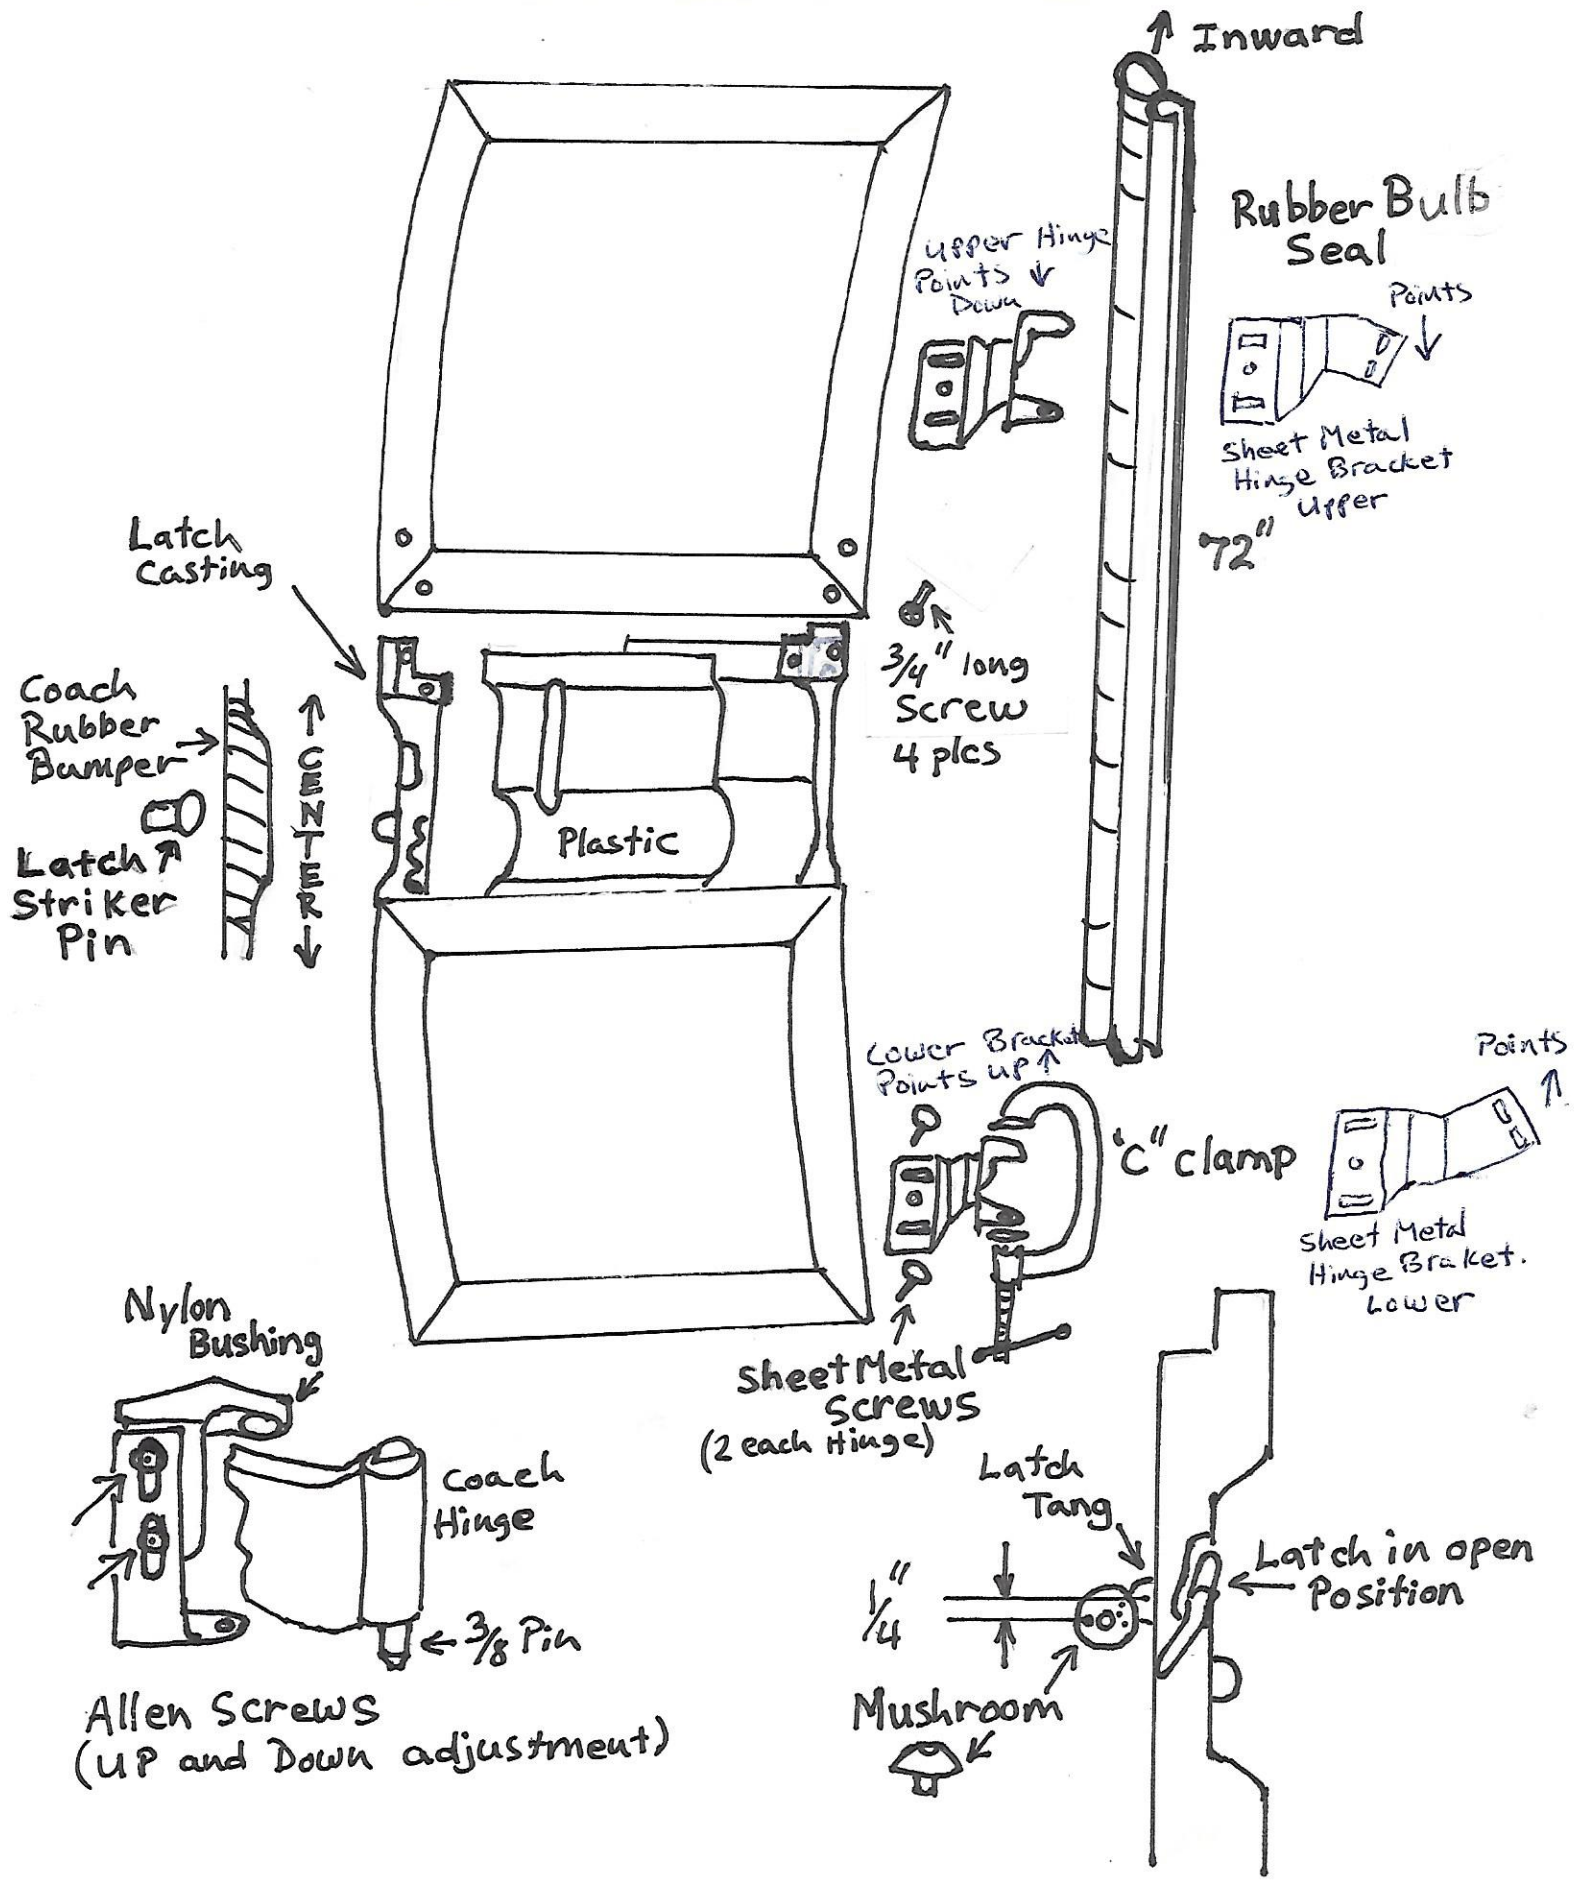 Inward
Rubber Bulb
Seal
Upper Hinge
Points ↓
Down
Points
↓
Sheet Metal
Hinge Bracket
Upper
72"
Latch
Casting
3/4" long
Screw
4 plcs
Coach
Rubber
Bumper
↑
CENTER
↓
Latch
Striker
Pin
Plastic
Lower Bracket
Points up ↑
"C" Clamp
Points
↑
Sheet Metal
Hinge Braket.
Lower
Nylon
Bushing
Sheet Metal
Screws
(2 each Hinge)
Coach
Hinge
3/8 Pin
Allen Screws
(UP and Down adjustment)
Latch
Tang
Latch in open
Position
1/4"
Mushroom